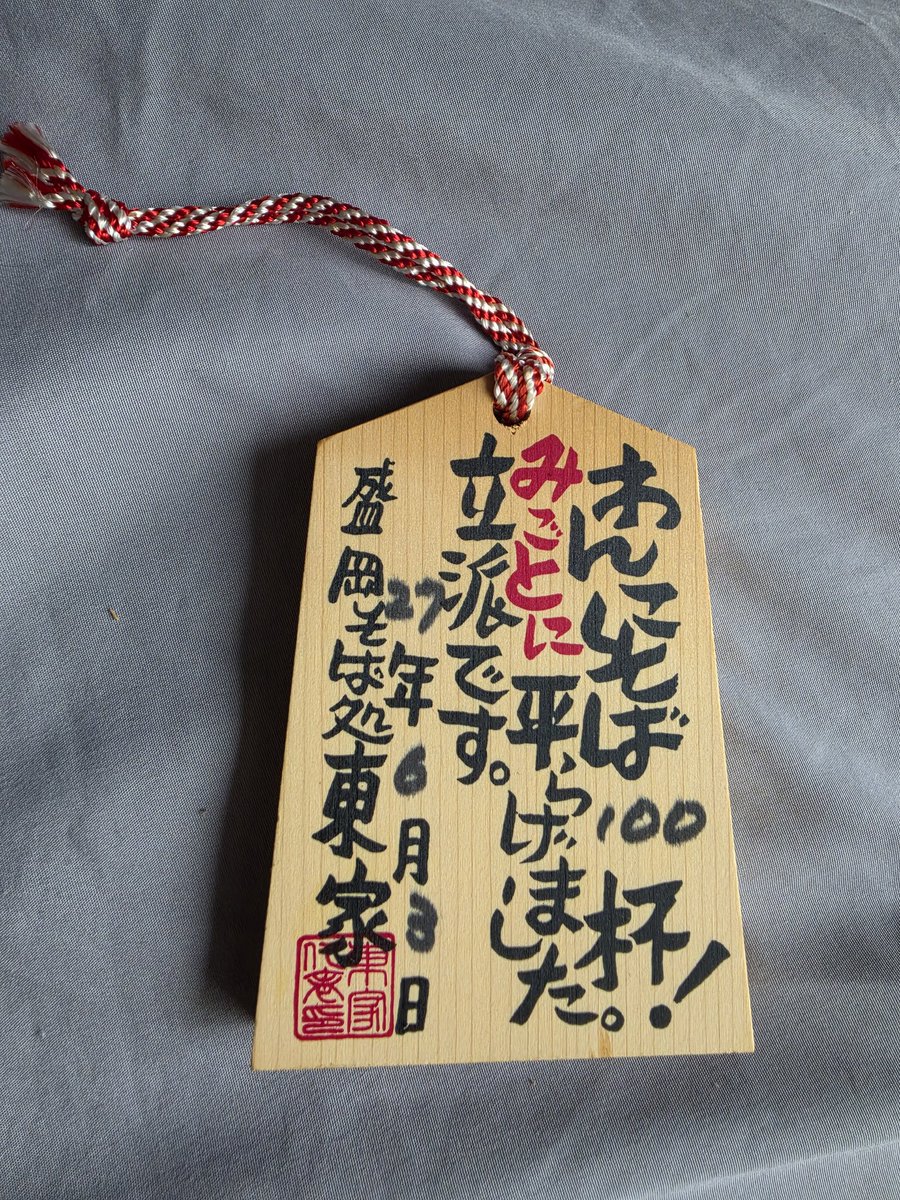 わんこそば100杯!
みごとに平らげました。
立派です。
27年6月8日
盛岡そば処東家